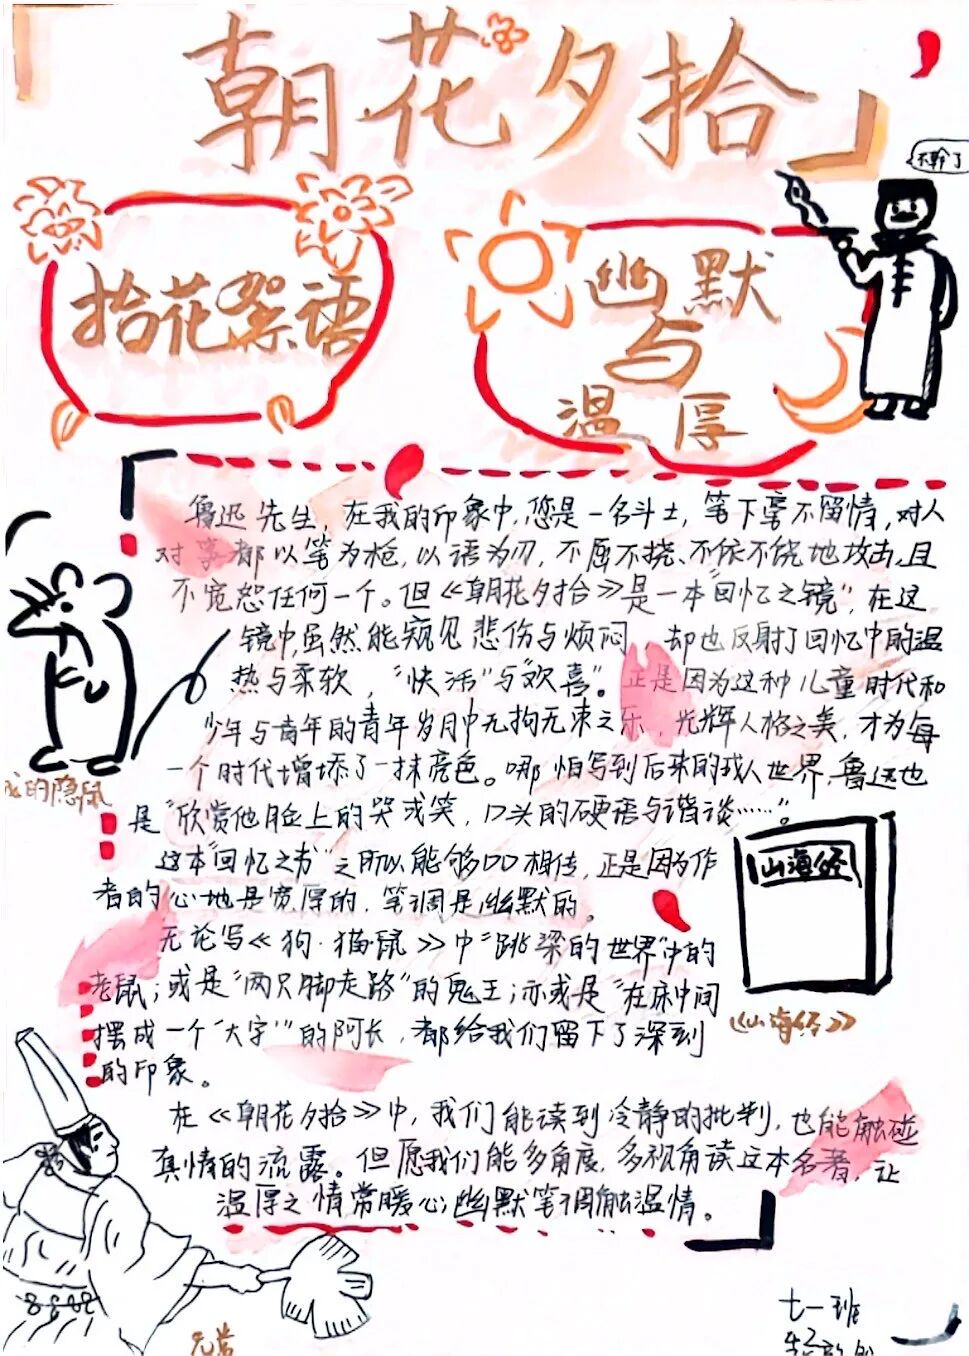 「朝花夕拾」
不幹了
拾花絮语
幽默
与
温厚
鲁迅先生，在我的印象中，您是一名斗士，笔下毫不留情，对人
对事都以笔为枪，以语为刃，不屈不挠、不依不饶地攻击，且
不宽恕任何一个。但《朝花夕拾》是一本“回忆之镜”，在这
镜中虽然能窥见悲伤与烦闷，却也反射了回忆中的温
热与柔软，“快活”与“欢喜”。正是因为这种儿童时代和
少年与青年的青年岁月中无拘无束之乐，光辉人格之美，才为每
一个时代增添了一抹亮色。哪怕写到后来的成人世界，鲁迅也
是“欣赏他脸上的哭或笑，口头的硬语与谐谈……”。
我的隐鼠
这本“回忆之书”之所以能够口口相传，正是因为作
者的心地是宽厚的，笔调是幽默的。
山海经
无论写《狗·猫·鼠》中“跳梁的世界”中的
老鼠；或是“两只脚走路”的鬼王；亦或是“在床中间
摆成一个“大字””的阿长，都给我们留下了深刻
的印象。
《山海经》
在《朝花夕拾》中，我们能读到冷静的批判，也能触碰
真情的流露。但愿我们能多角度，多视角读这本名著，让
温厚之情常暖心；幽默笔调触温情。
无常
七一班